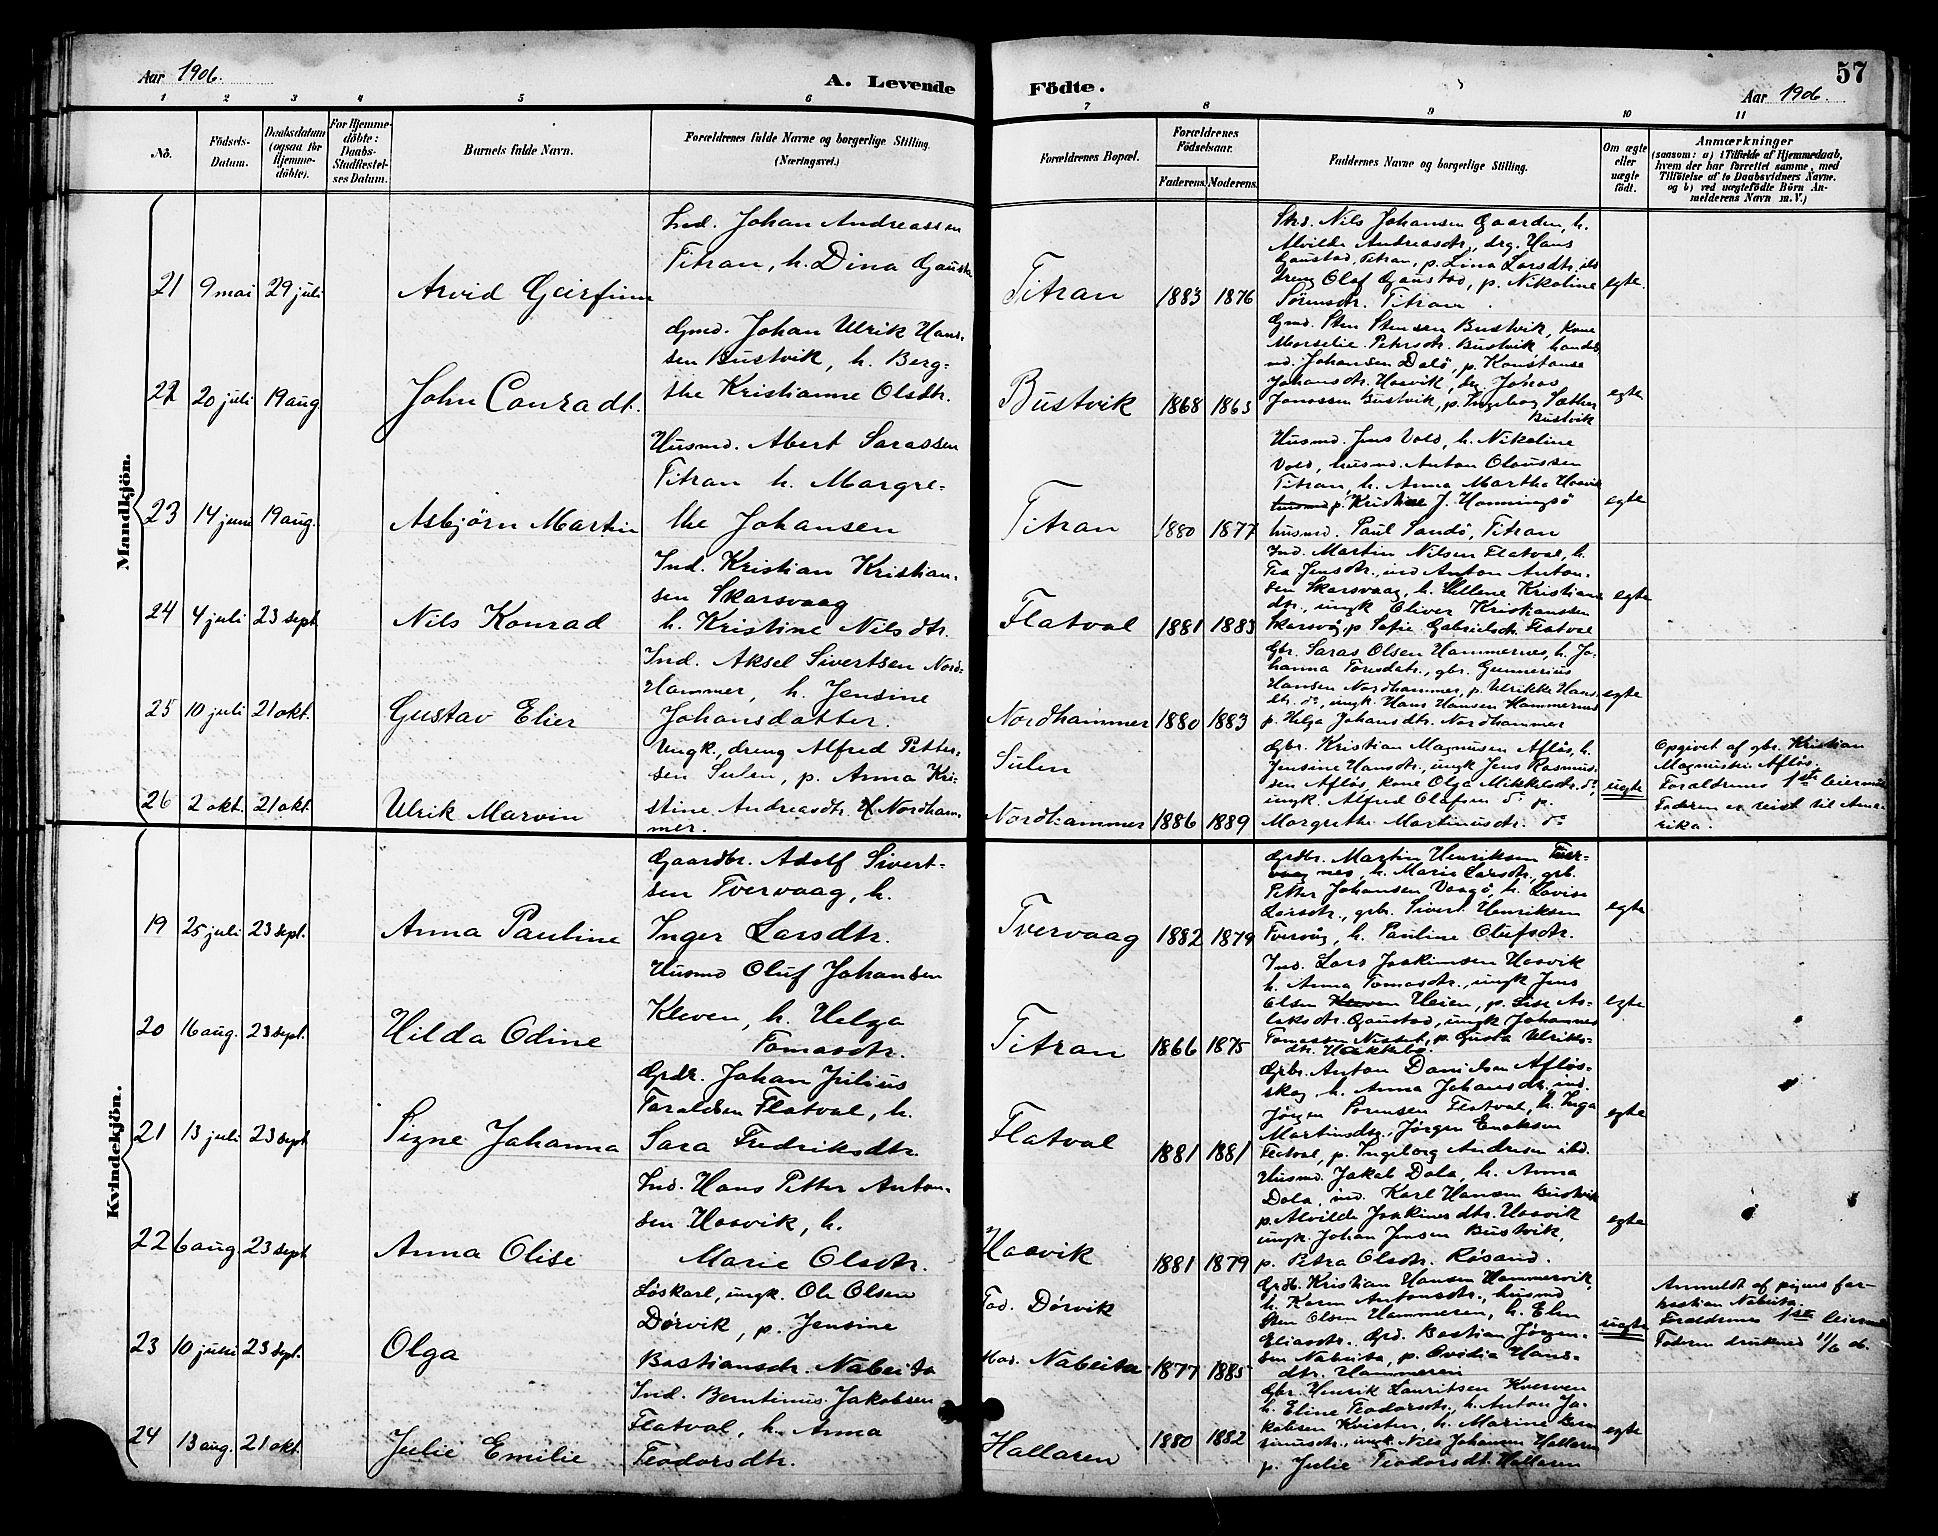 Aar 1906.
A. Levende
Födte.
57
Aar 1906.
1 2 3 4 5 6
7 8 9 10 11
No.
Födsels-
Datum.
Daabsdatum
(ogsaa for
Hjemme-
döbte).
For Hjemme-
döbte:
Daabs-
Stadfæstel-
ses Datum.
Barnets fulde Navn.
Forældrenes fulde Navne og borgerlige Stilling.
(Næringsvei.)
Forældrenes Bopæl.
Forældrenes
Födselsaar.
Faderens. Moderens.
Faddernes Navne og borgerlige Stilling.
Om ægte
eller
uægte
födt.
Anmærkninger
(saasom: a) i Tilfælde af Hjemmedaab,
hvem der har forrettet samme, med
Tilföielse af to Daabsvidners Navne.
og b) ved uægtefödte Börn An-
melderens Navn m.V.)
Mandkjön.
21 9 mai 29 juli
Arvid Geirfinn
Ind. Johan Andreassen
Titran, h. Dina Gausta
Titran 1883 1876
Sks. Nils Johansen Gaarden, h.
Alvilde Andreasdtr., drg. Hans
Gaustad, Titran, p. Lina Larsdtr. ibd
dreng Olaf Gaustad, p. Nikoline
Sörensdtr. Titran.
egte.
22 20 juli 19 aug
John Conradt.
Gmd. Johan Ulrik Hans-
sen Bustvik, h. Berg-
the Kristianne Olsdtr.
Bustvik 1868 1863
Gmd. Sten Stensen Bustvik, kone
Marselie Petersdtr. Bustvik, handels
md. Johansen Dalö, p. Konstanse
Johansdtr. Hosvik, drg. Johas
Jonassen Bustvik, p. Ingeborg Sæther
Bustvik
egte
23 14 juni 19 aug.
Asbjörn Martin
Husmd. Abert Sarassen
Titran h. Margre-
the Johansen
Titran 1880 1877
Husmd. Jens Vold, h. Nikoline
Vold, husmd. Anton Olaussen
Titran, h. Anna Martha Hosvik
husmd p. Kristine J. Hommingsö
husmd. Paul Sandö, Titran
egte
24 4 juli 23 sept
Nils Konrad
Ind. Kristian Kristian-
sen Skarsvaag
h. Kristine Nilsdtr.
Flatval 1881 1883
Ind. Martin Nilsen Flatval, h.
Tea Jensdtr., ind Anton Anton-
sen Skarsvaag, h. Hellene Kristians
dtr., ungk Oliver Kristianssen
Skarsvåg, p Sofie Gabrielsdtr. Flatval
egte
25 10 juli 21 okt.
Gustav Elier
Ind. Aksel Sivertsen Nord-
Hammer, h. Jensine
Johansdatter.
Nordhammer 1880 1883
Gbr. Saras Olsen Hammernes, h. Jo-
hanna Tomsdatr., gbr. Gunnerius
Hansen Nordhammer, p. Ulrikke Hans-
dtr. do, ungk Hans Hansen Hammernes
p. Helga Johansdtr. Nordhammer
egte
26 2 okt. 21 okt.
Ulrik Marvin
Ungk., dreng Alfred Petter-
sen Sulen, p. Anna Kri-
stine Andreasdtr. Nordham-
mer.
Sulen
Nordhammer 1886 1889
Gbr. Kristian Magnusen Aflös, h.
Jensine Hansdtr., ungk Jens Rasmus-
sen Aflös, kone Olga Mikkelsdtr. do,
ungk. Alfred Olafsen do p.
Margrethe Martinusdtr. do
uegte
Opgivet af gbr. Kristian
Magnussen Aflös.
Foraldrenes 1ste leiermaal
Faderen er reist til Ame-
rika.
Kvindekjön.
19 25 juli 23 sept.
Anna Pauline
Gaardbr. Adolf Sivert-
sen Tvervaag, h.
Inger Larsdtr.
Tvervaag 1882 1879
Grdbr. Martin Henriksen Tver-
vaag nes, h. Marie Larsdtr., grb.
Petter Johansen Vaagö, h. Lovise
Larsdtr., grbr. Sivert Henriksen
Tvervåg, h. Pauline Olufsdtr.
egte
20 16 aug. 23 sept.
Hilda Odine
Husmd Oluf Johansen
Kleven, h. Helga
Tomasdtr.
Titran 1866 1875
Ind. Lars Joakimsen Hosvik
h. Anna Tomasdtr., ungk Jens
Olsen Kleven Heien, p. Lise As-
laksdtr. Gaustad, ungk Johannes
Tomassen Nesset, p. Gusta Ulriks-
dtr. Hakkebo.
egte.
21 13 juli 23 sept
Signe Johanna
Grdr. Johan Julius
Taraldsen Flatval, h.
Sara Fredriksdtr.
Flatval 1881 1881
Grbr. Anton Danielsen Aflös-
skag, h. Anna Johansdtr., ind.
Jörgen Sorensen Flatval, h. Inga
Martinsdtr., Jörgen Enoksen
Flatval, p. Ingeborg Andresen ibd.
egte
22 6 aug 23 sept
Anna Olise
Ind. Hans Petter Anton-
sen Hosvik, h.
Marie Olsdtr.
Hosvik 1881 1879
Husmd. Jakob Dala, h. Anna
Dala, ind. Karl Hansen Bustvik
p. Alvilde Joakimsdtr. Hosvik
ungk. Johan Jensen Bustvik,
p. Petra Olsdtr. Rösand.
egte
23 10 juli 23 sept.
Olga
Löskarl, ungk. Ole Olsen
Dörvik, p. Jensine
Bastiansdtr. Nabeita
Fad. Dörvik
Mod. Nabeita 1877 1885
Grdb. Kristian Hansen Hammervik,
h. Karen Antonsdtr., husmd
Sten Olsen Hammeren, h. Elen
Eliasdtr. Grd. Bastian Jörgen-
sen Nabeita, p. Ovidia Hans-
dtr. Hammeren
uegte
Anmeldt af pigens far
Bastian Nabeita.
Foraldrenes 1ste leiermaal
Faderen druknet 11/6 06.
24 13 aug. 21 okt.
Julie Emilie
Ind. Berntinus Jakobsen
Flatval, h. Anna
Teodorsdtr.
Hallaren 1880 1882
Gbr. Henrik Lauritsen Kverven
h. Eline Teodorsdtr., h. Anton Ja-
kobsen Kvisten, h. Marine Bern
sinusdtr., ungk. Nils Johansen Hallaren
p. Julie Teodorsdtr. Hallaren
egte